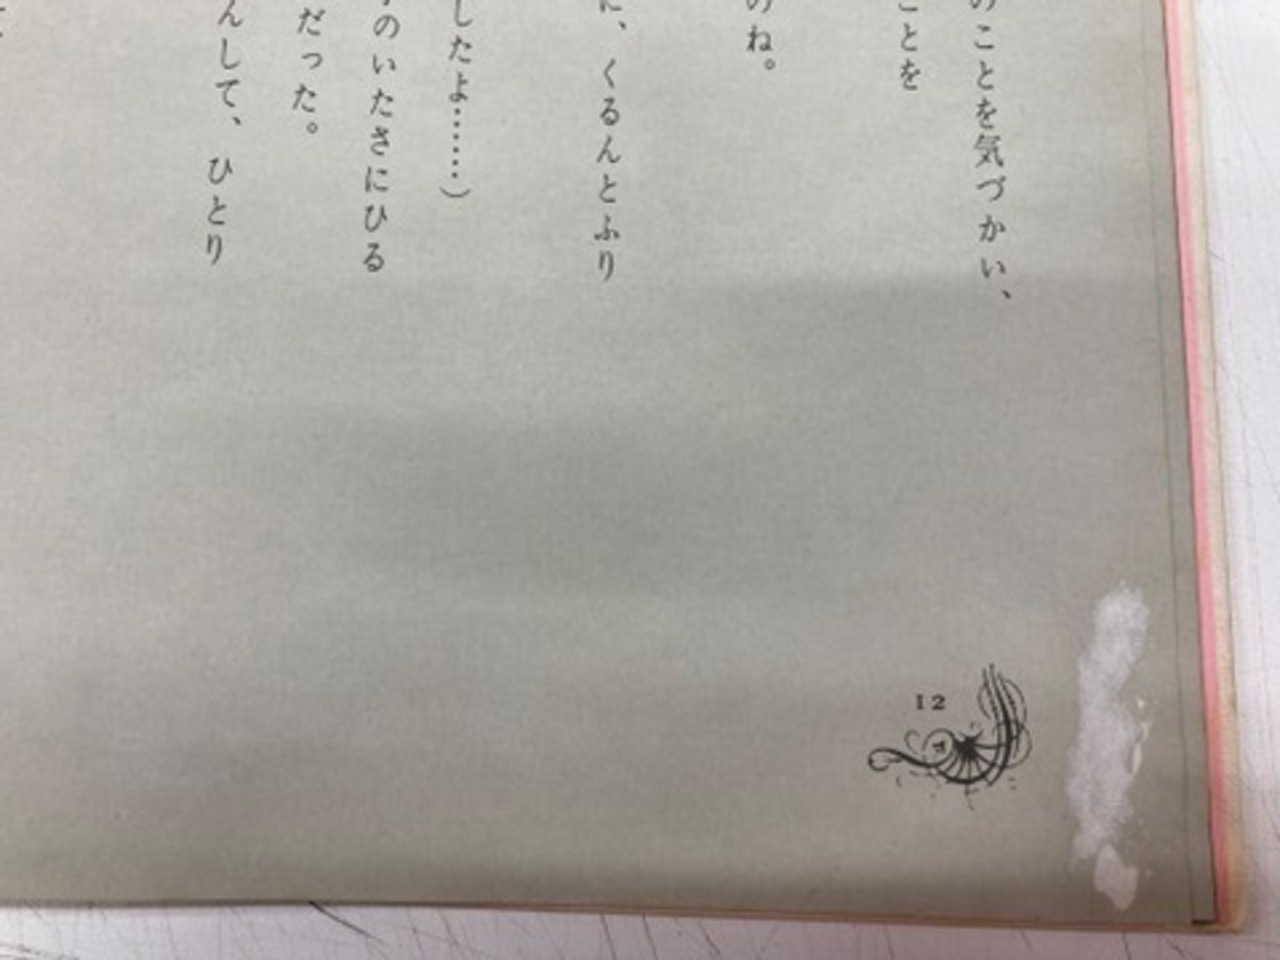 のことを気づかい、
ことを
のね。
に、くるんとふり
したよ……）
のいたさにひる
だった。
んして、ひとり
12